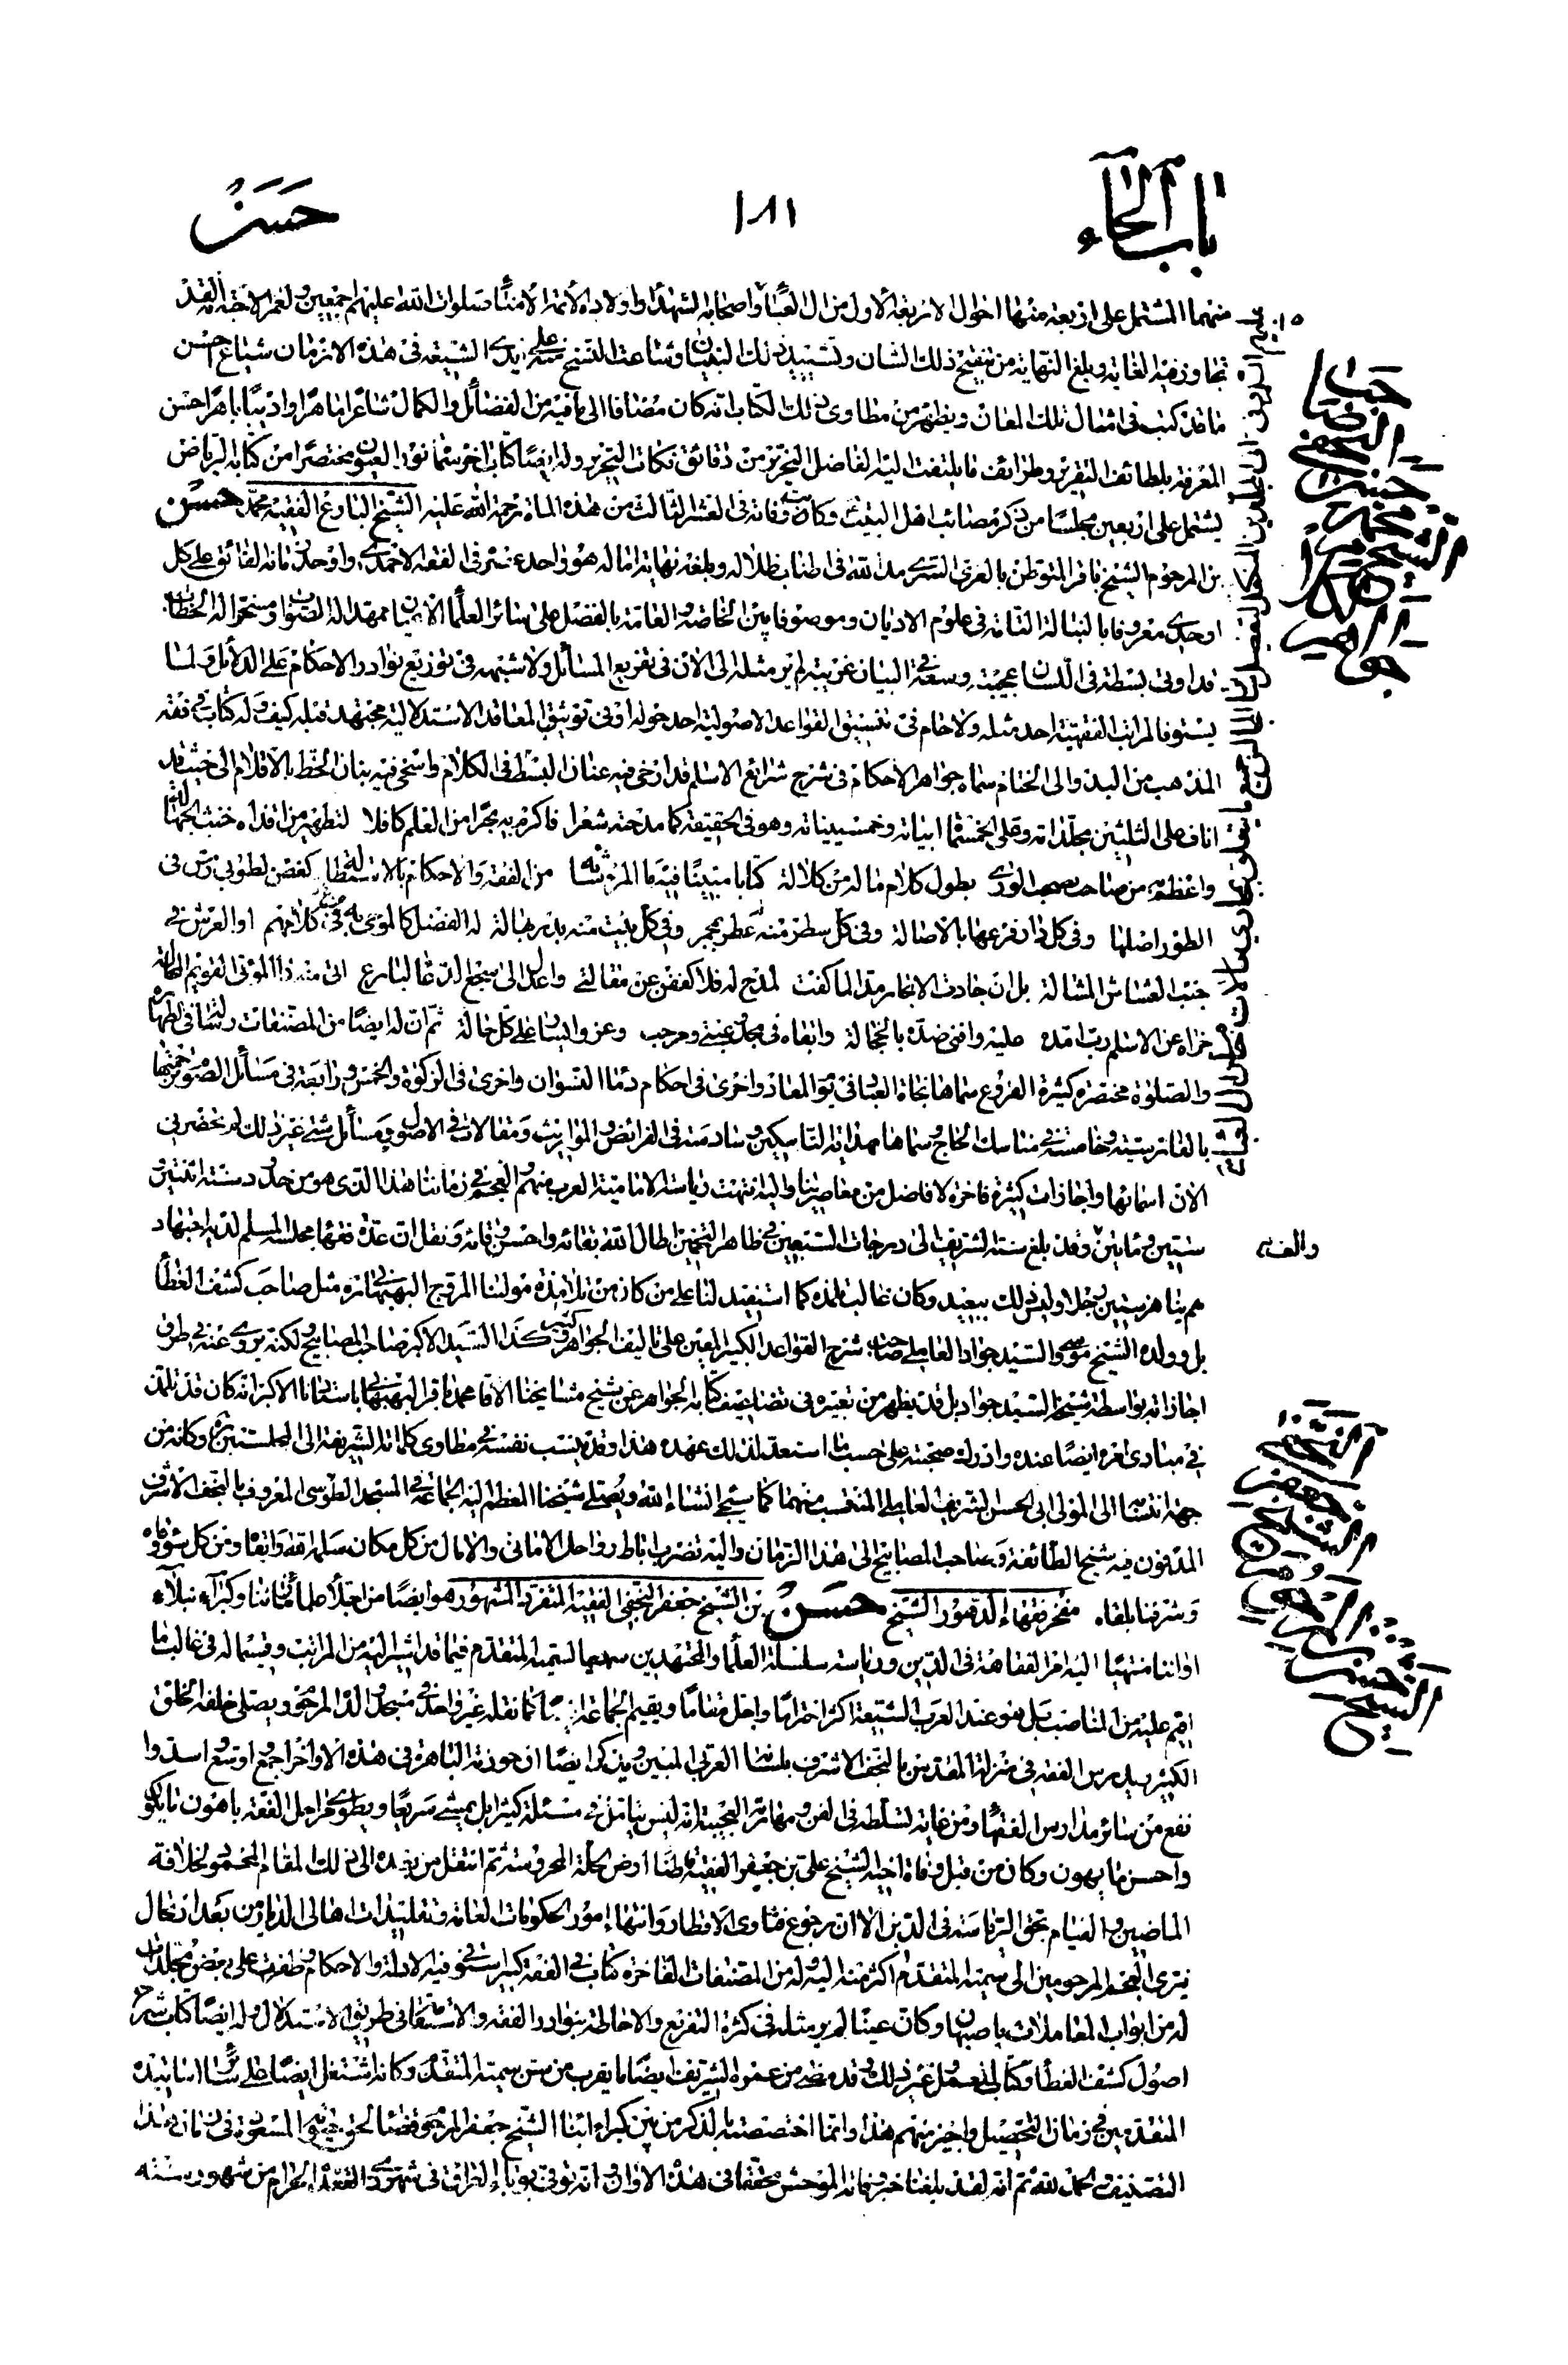 باب الحاء
١٨١
حَسَن
منهما المشتمل على اربعة منها احوال الاربعة الأول من ال العبا واصحابه الشهداء واولاده الأئمة الأمناء صلوات الله عليهم اجمعين ولعمر الاحبة انه لقد
تجاوز فيه الغاية وبلغ النهاية من تنقيح ذلك الشان وتشييد ذلك البنيان وشاعت النسخ منه على ايدى الشيعة فى هذه الازمان شياع احسن
ما قد كتب فى امثال تلك المعان ويظهر من مطاوى ذلك الكتاب انه كان مضافا الى ما فيه من الفضائل والكمال شاعرا ماهرا واديبا باهرا حسن
المعرفة بلطائف التقرير وطرائف ما يلتفت اليه الفاضل النحرير من دقائق نكات التحرير وله ايضا كتاب اخر سماه نور العيون مختصرا من كتابه الرياض
يشتمل على اربعين مجلسا من ذكر مصائب اهل البيت وكان وفاته فى العشر الثالث من هذه المائة رحمة الله عليه الشيخ البارع الفقيه محمد حسن
بن المرحوم الشيخ باقر المتوطن بالغرى السرى مد الله فى اطناب ظلاله وبلغه نهاية اماله هو واحد عصره فى الفقه الاحمدى واوحد زمانه الفائق على كل
اوحدى معروفا بالنبالة التامة فى علوم الاديان وموصوفا بين الخاصة والعامة بالفضل على سائر العلماء الاعيان ممهدا له الصواب ومسخرا له الخطاب
قد اوتى بسطة فى اللسان عجيبة وسعة فى البيان غريبة لم ير مثله الى الان فى تفريع المسائل ولا شبهه فى توزيع نوادر الاحكام على الدلائل ولما
يستوف المراتب الفقهية احد مثله ولا حام فى تنسيق القواعد الاصولية احد حوله او فى توثيق المعاقد الاستدلالية مجتهد قبله كيف وله كتاب فى فقه
المذهب من البدو الى الختام سماه جواهر الاحكام فى شرح شرايع الاسلام قد ارخى فيه عنان البسط فى الكلام واسخى فيه بنان الخط بالاقلام الى حيث قد
اناف على الثلثين مجلداته وعلى الخمسمائة ابياته وخمسينياته وهو فى الحقيقة كما مدحته شعرا فاكرم به بحرا من العلم كافلا لتطهير من اقذاه خبث الجهالة
واعظم به من صاحب الورى بطول كلام ما له من كلالة كتابا مبينا فيه ما المرء من الفقه والاحكام بالاستطالة كغصن لطوبى رس فى
الطور اصلها وفى كل دار فرعها بالاصالة وفى كل سطر منه عطر بمجمر وفى كل بيت منه بدر بهالة له الفضل كالموسى به فى كلامهم او العرش فى
جنب العشاش المشالة بل ان جادت الابحار مدا لما كفت لمدح له فلاكففن عن مقالتى واعدل الى سجع الدعا لبارع
جزاه عن الاسلام رب امده عليه وافنى ضده بالخجالة وابقاه فى مجد على كل حالة ثم ان له ايضا من المصنفات رسالتنا فى الطهارة
والصلوة مختصرة كثيرة الفروع سماها نجاة العباد فى يوم المعاد واخرى فى احكام دماء النسوان واخرى فى الزكوة والخمس ورابعة فى مسائل الصوم
بالفارسية وخامسة فى مناسك الحاج سماها هداية الناسكين وسادسة فى الفرائض والمواريث ومقالات فى الاصول ومسائل شتى غير ذلك لم يحضرنى
الان اسمائها واجازات كثيرة فاخرة لافاضل من معاصرينا واليه انتهت رياسة الامامية العرب منهم والعجم فى زماننا هذا الذى هو من حدود سنة اثنتين
ستين ومأتين وقد بلغ سنه الشريف الى درجات السبعين فى ظاهر التخمين اطال الله بقائه واحسن وقائه ونقل ان عدة فقهاء مجلسه المسلم لديه اجتهاد
والف
هم يناهز ستين رجلا وليس ذلك ببعيد وكان غالب تلمذه كما استفيد لنا على من كان من تلامذة مولينا المروج البهبهانى مثل صاحب كشف الغطاء
بل وولده الشيخ موسى والسيد جواد العاملى صاحب شرح القواعد الكبير المعين على تاليف الجواهر كثيرا كذا السيد الاكبر صاحب المصابيح لكنه يروى عنه فى طرق
اجازاته بواسطة شيخه السيد جواد بل قد يظهر من تعبيره فى تضاعيف كتابه الجواهر عن شيخ مشايخنا الاقا محمد باقر البهبهانى باستاذنا الاكبر انه كان قد تلمذ
فى مبادى امره ايضا عنده وادرك صحبته على حسب ما استعد لذلك عهده هذا وقد ينسب نفسه فى مطاوى كلماته الشريفة الى المجلسيين وكانه من
جهة انتسابه الى المولى ابى الحسن الشريف العاملى المنتسب منهما كما سيجئ انشاء الله ويصلى شيخنا المعظم اليه الجماعة فى المسجد الطوسى المعروف بالنجف الاشرف
المدفون فيه شيخ الطائفة وصاحب المصابيح الى هذا الزمان واليه تضرب اباط رواحل الامانى والامال من كل مكان سلمه الله وابقاه ومن كل سوء وقاه
وشرفنا بلقاه مفخر فقهاء الدهور الشيخ حَسَن بن الشيخ جعفر النجفى الفقيه المتفرد المشهور هو ايضا من اجلاء علماء زماننا وكبراء نبلاء
اواننا منتهيا اليه امر الفقاهة فى الدين ورياسة سلسلة العلماء والمجتهدين لسميه المتقدم فيما قد اشير اليه من المراتب وقسيما له فى غالب ما
اقيم عليه من المناصب بل هو عند العرب الشيعة اكثر احتراما واجل مقاما ويقيم الجماعة كما نقله غير واحد فى مسجد والده المرحوم ويصلى خلفه الخلق
الكثير ويدرس الفقه فى منزلها المقدس بالنجف الاشرف بلسانه العربى المبين ويذكر ايضا ان حوزته الباهرة فى هذه الاواخر اجمع واوسع واسد وا
نفع من سائر مدارس الفقهاء ومن غاية تسلطه فى الفن ومهارته العجيبة انه ليس يتامل فى مسئلة كثيرا بل يمشى سريعا ويطوى مراحل الفقه باهون ما يكون
واحسن ما يهون وكان من قبل وفاة اخيه الشيخ على بن جعفر الفقيه قاطنا ارض الحلة المحروسة ثم انتقل من بعده الى ذلك المقام المحمود لخلافة
الماضين والقيام بحق الرياسة فى الدين الا ان رجوع فتاوى الاقطار وانتهاء امور الحكومات العامة وتقليدات اهالى الديار من بعد ارتحال
نيرى العجم المرحومين الى سميه المتقدم اكثر منه اليه وله من المصنفات الفاخرة كتاب فى الفقه كبير استوفى فيه الادلة والاحكام وظفرت على بعض مجلدات
له من ابواب المعاملات باصبهان وكان عينا لم ير مثله فى كثرة التفريع والاحاطة بنوادر الفقه والاستقامة فى طريق الاستدلال وله ايضا كتاب شرح
اصول كشف الغطاء وكتاب لعمل غير ذلك وقد مضى من عمره الشريف ايضا ما يقرب من سن سميه المتقدم وكانه اشتغل ايضا على اساتيذه
المتقدمين فى زمان التحصيل واجيز منهم هذا وانما اختصصته بالذكر من بين كبراء ابناء الشيخ جعفر المرحوم قضاء لحق المسعود فى زمان هذا
التصنيف والحمد لله ثم انه لقد بلغنا خبر وفاته الموحش محققا فى هذه الاوان وانه توفى بوباء العراق فى شهر ذى القعدة الحرام من شهور سنة
الشيخ محمد حسن النجفى صاحب
جواهر الكلام
الشيخ حسن
الشيخ جعفر
النجفى